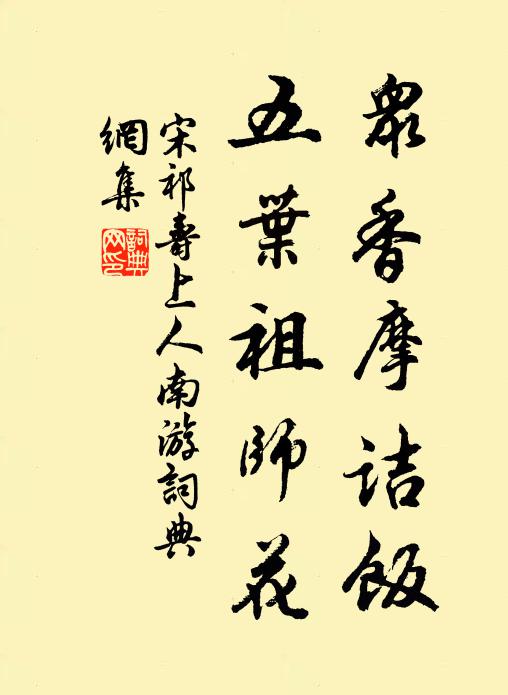 眾香摩詰飯
五葉祖師花
宋祁壽上人南游詞典
網集
詞典网印